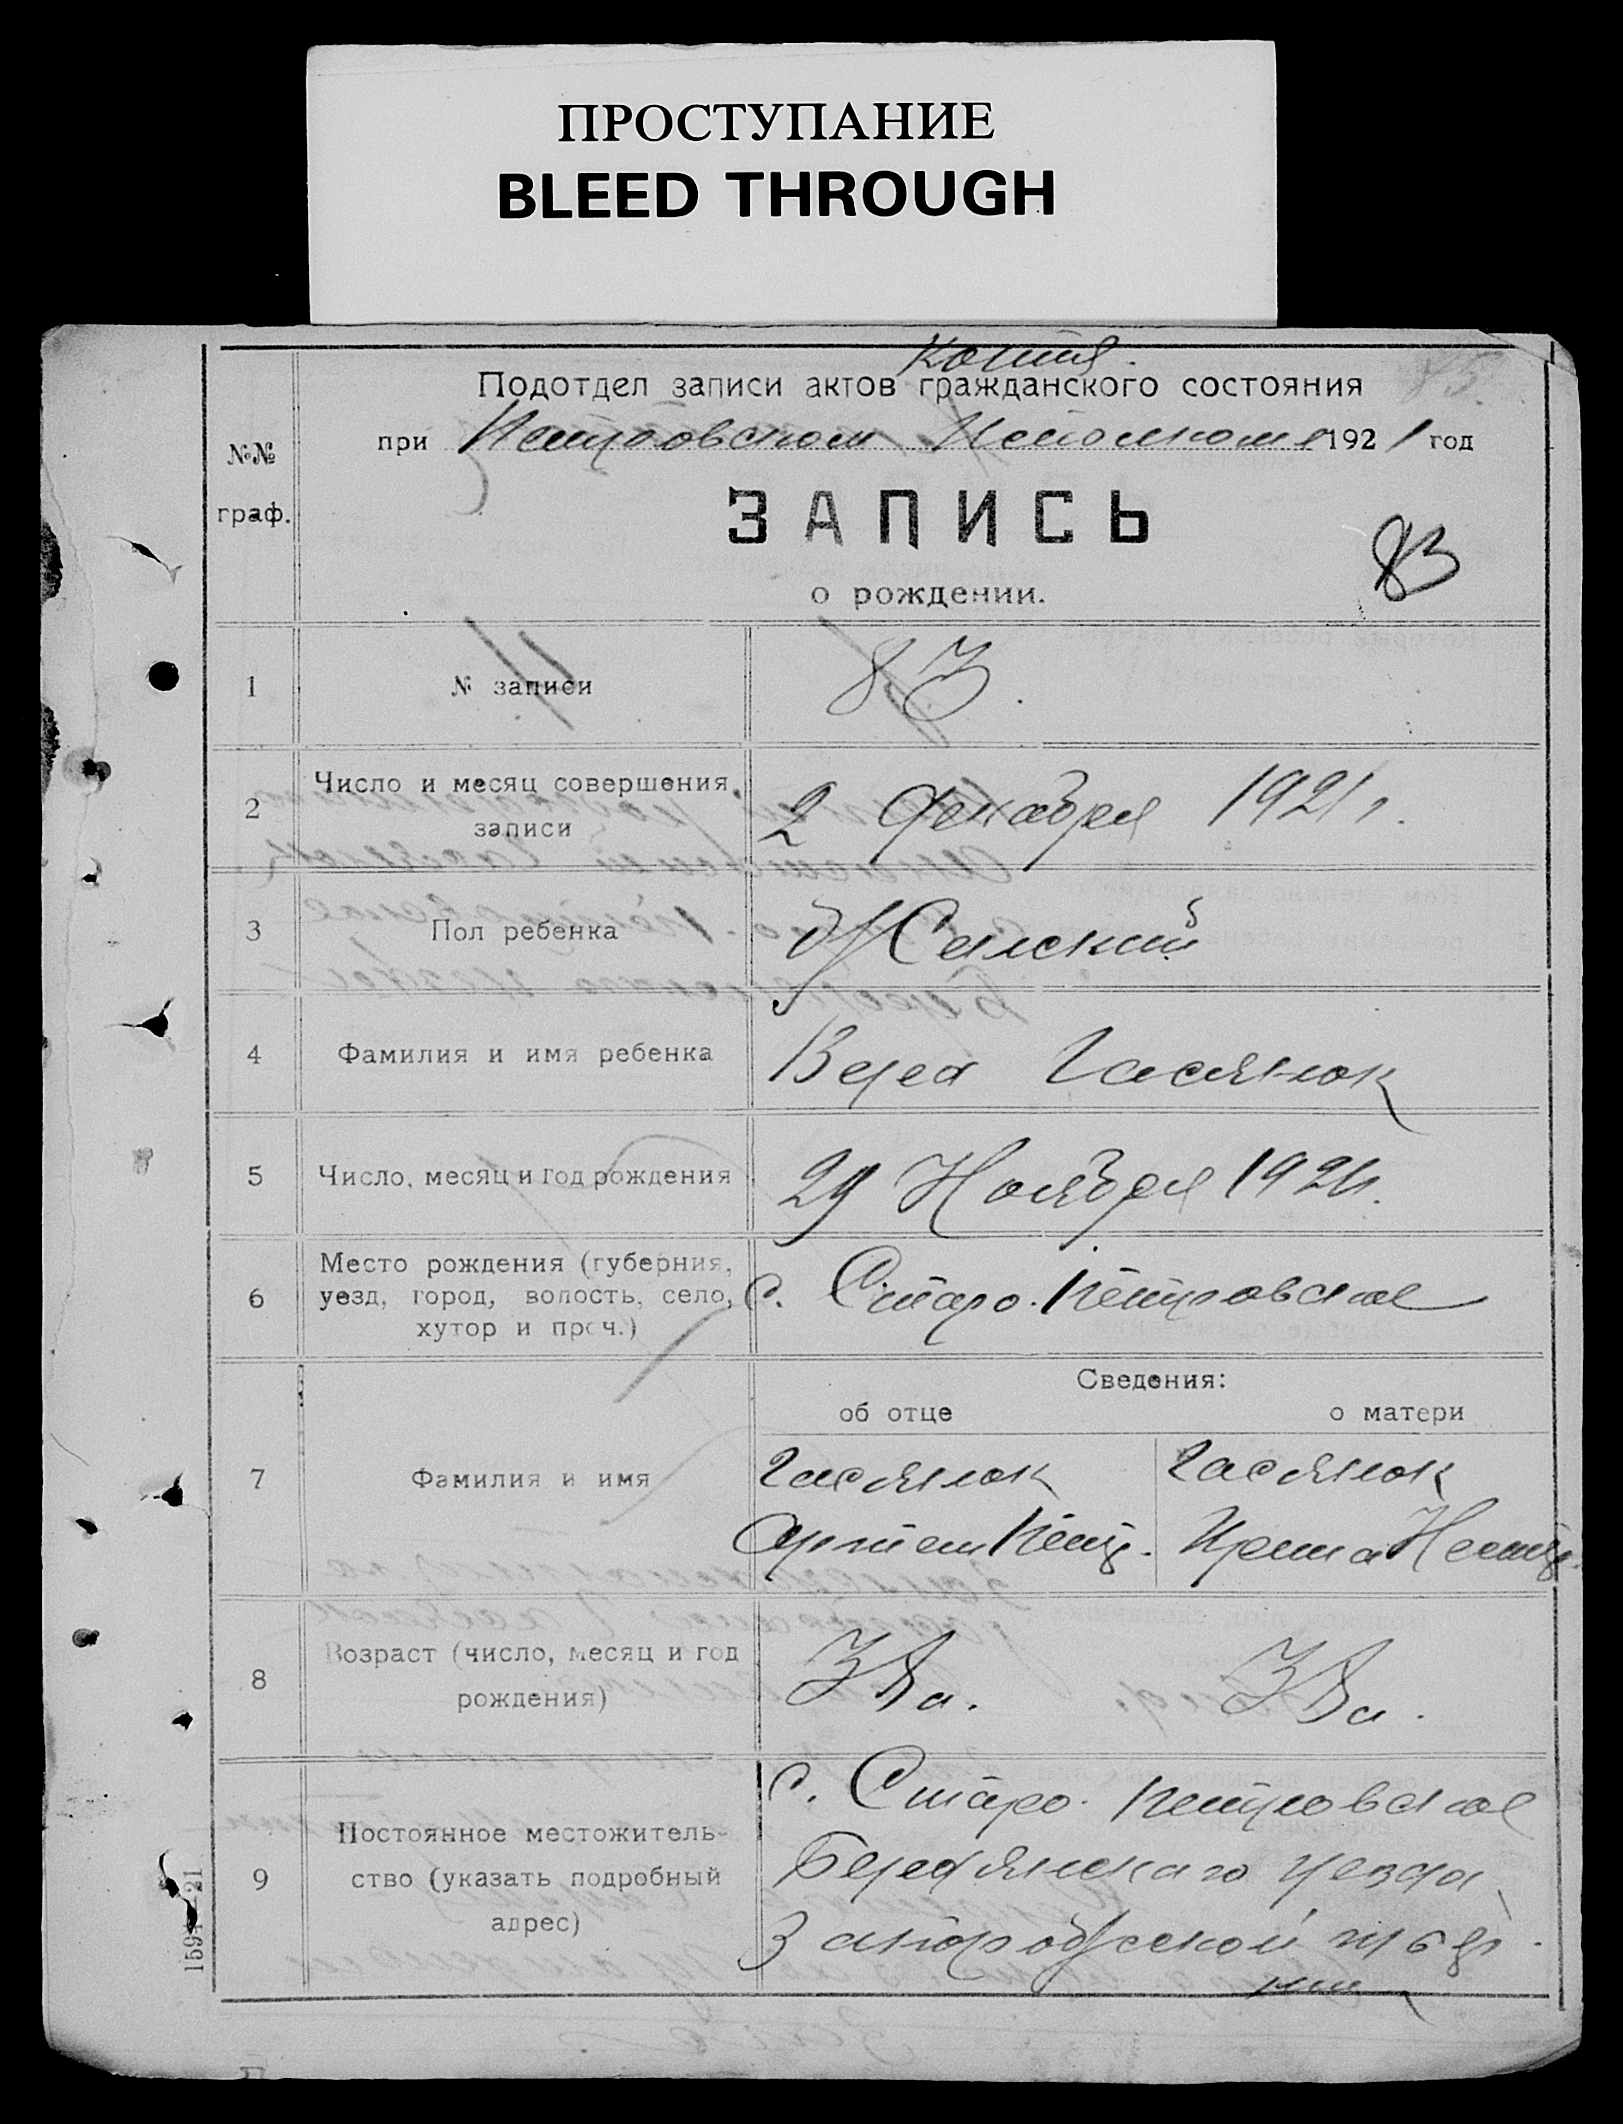 ПРОСТУПАНИЕ
BLEED THROUGH
Копия.
Подотдел записи актов гражданского состояния
при Петровском Исполкоме 1921 год
№№
граф.
ЗАПИСЬ
83
о рождении.
1 № записи 83.
2 Число и месяц совершения записи 2 Декабря 1921 г.
3 Пол ребенка Женский
4 Фамилия и имя ребенка Вера Гасянюк
5 Число, месяц и год рождения 29 Ноября 1921 г.
6 Место рождения (губерния,
уезд, город, волость, село, с. Старо-Петровское
хутор и проч.)
Сведения:
об отце о матери
7 Фамилия и имя Гасянюк Гасянюк
Артем Петр. Ирина
8 Возраст (число, месяц и год
рождения)
с. Старо-Петровское
9 Постоянное местожитель-
ство (указать подробный Бердянскаго уезда
адрес) Запорожской губер
нии
159 21